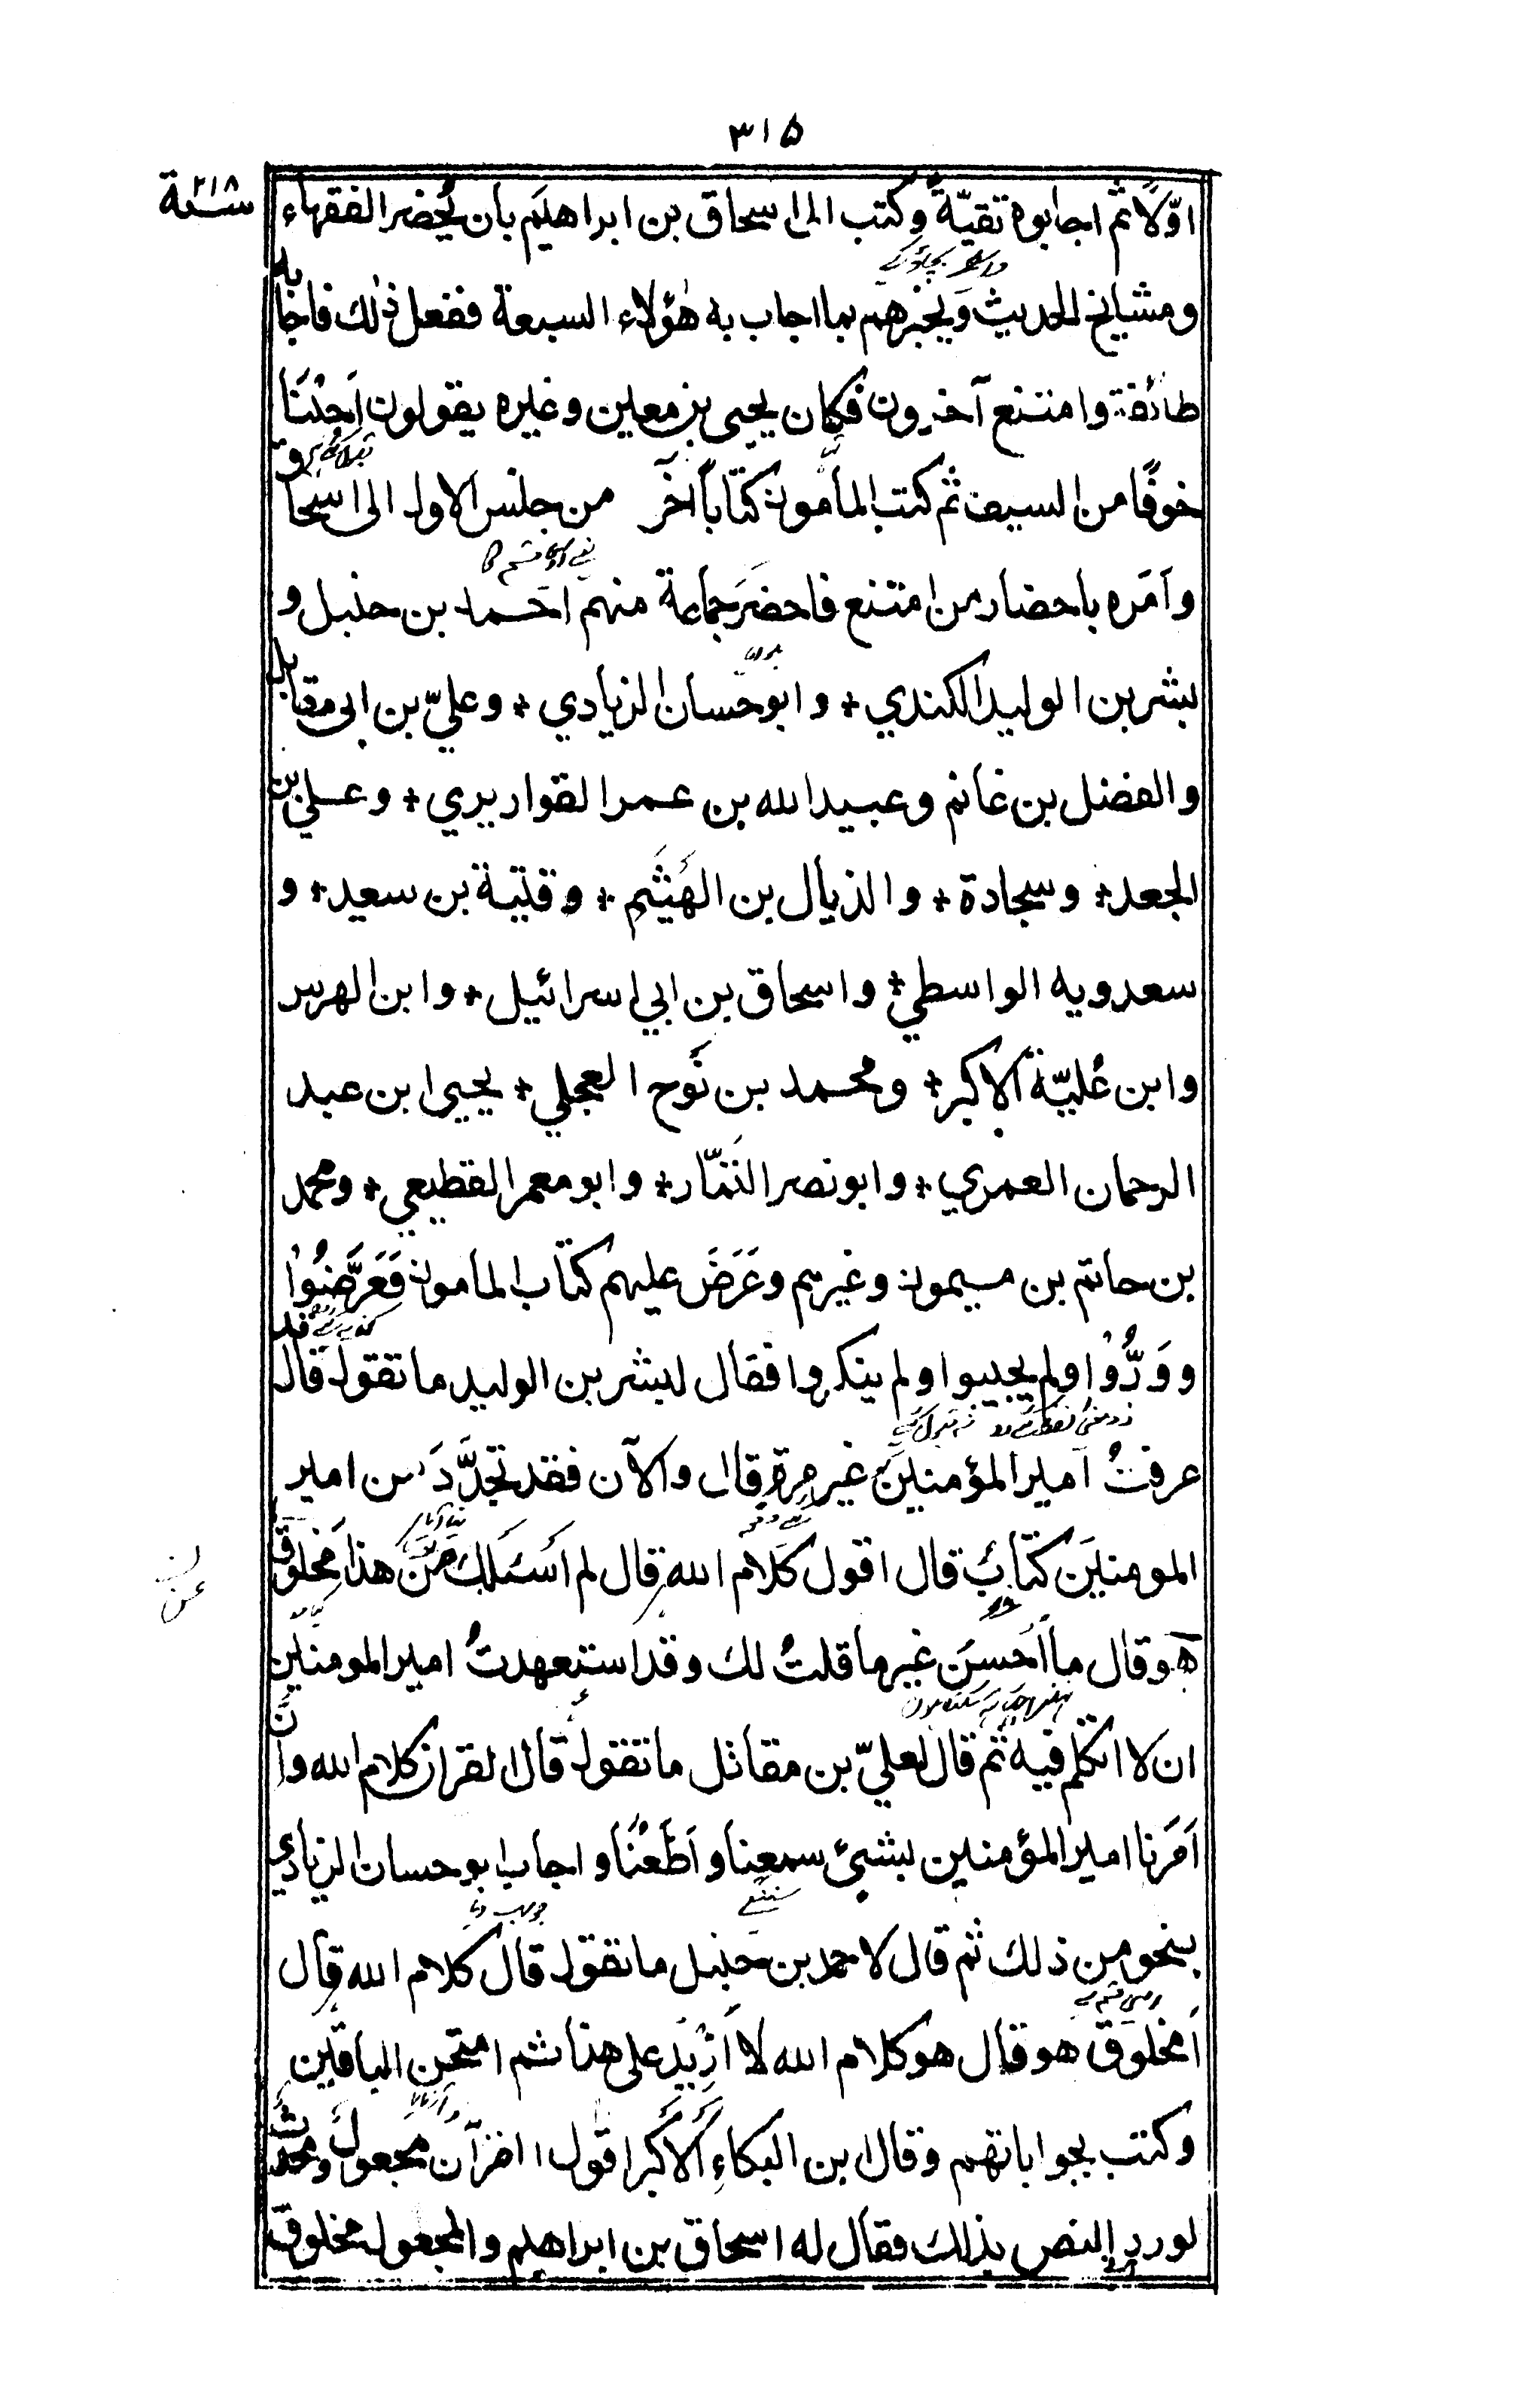 ٣١٥
سنة ٢١٨
اوّلاً ثم اجابوه تقيّةً وكتب الى اسحاق بن ابراهيم بان يُحضر الفقهاء
ومشايخ الحديث ويخبرهم بما اجاب به هٰؤلاء السبعة ففعل ذٰلك فاجابه
طائفة وامتنع آخرون فكان يحيى بن معين وغيره يقولون اَجَبْنَا
خوفًا من السيف ثم كتب المأمون كتاباً اٰخر من جنس الاول الى اسحاق
واَمَره باحضار من امتنع فاحضَر جماعة منهم احمد بن حنبل و
بشر بن الوليد الكندي + وابو حسان الزيادي + وعليّ بن ابى مقاتل
والفضل بن غانم وعبيد الله بن عمر القواريري + وعلي بن
الجعد + وسجادة + والذيال بن الهَيثَم + وقتيبة بن سعيد + و
سعدويه الواسطي + واسحاق بن ابي اسرائيل + وابن الهرس
وابن عُليّة الاكبر + ومحمد بن نُوح العجلي + يحيى ابن عبد
الرحمان العمري + وابو نصر التَمّار + وابو معمر القطيعي + ومحمد
بن حاتم بن ميمون وغيرهم وعَرَضَ عليهم كتاب المامون فَعَرَّضُوا
ووَرُّوْا ولم يجيبوا ولم ينكروا فقال لبشر بن الوليد ما تقول قال قد
عرفتُ امير المؤمنين غير مرة قال والآن فقد تجدَّدَ من امير
المومنين كتاب قال اقول كلام الله قال لم اسئلك عن هذا مخلوق
هو قال ما اُحسن غير ما قلتُ لك وقد استعهدتُ امير المومنين
ان لا اتكلم فيه ثم قال لعليّ بن مقاتل ما تقول قال القران كلام الله وان
اَمَرنا امير المؤمنين بشيئ سمعنا واَطَعْنَا واجاب ابو حسان الزيادي
بنحو من ذلك ثم قال لاحمد بن حنبل ما تقول قال كلام الله قال
اَمخلوق هو قال هو كلام الله لا اَزِيْد على هذا ثم امتحن الباقين
وكتب بجواباتهم وقال ابن البكاء الاكبر اقول القرآن مجعول ومحدث
لورد النص بذلك فقال له اسحاق بن ابراهيم والمجعول مخلوق